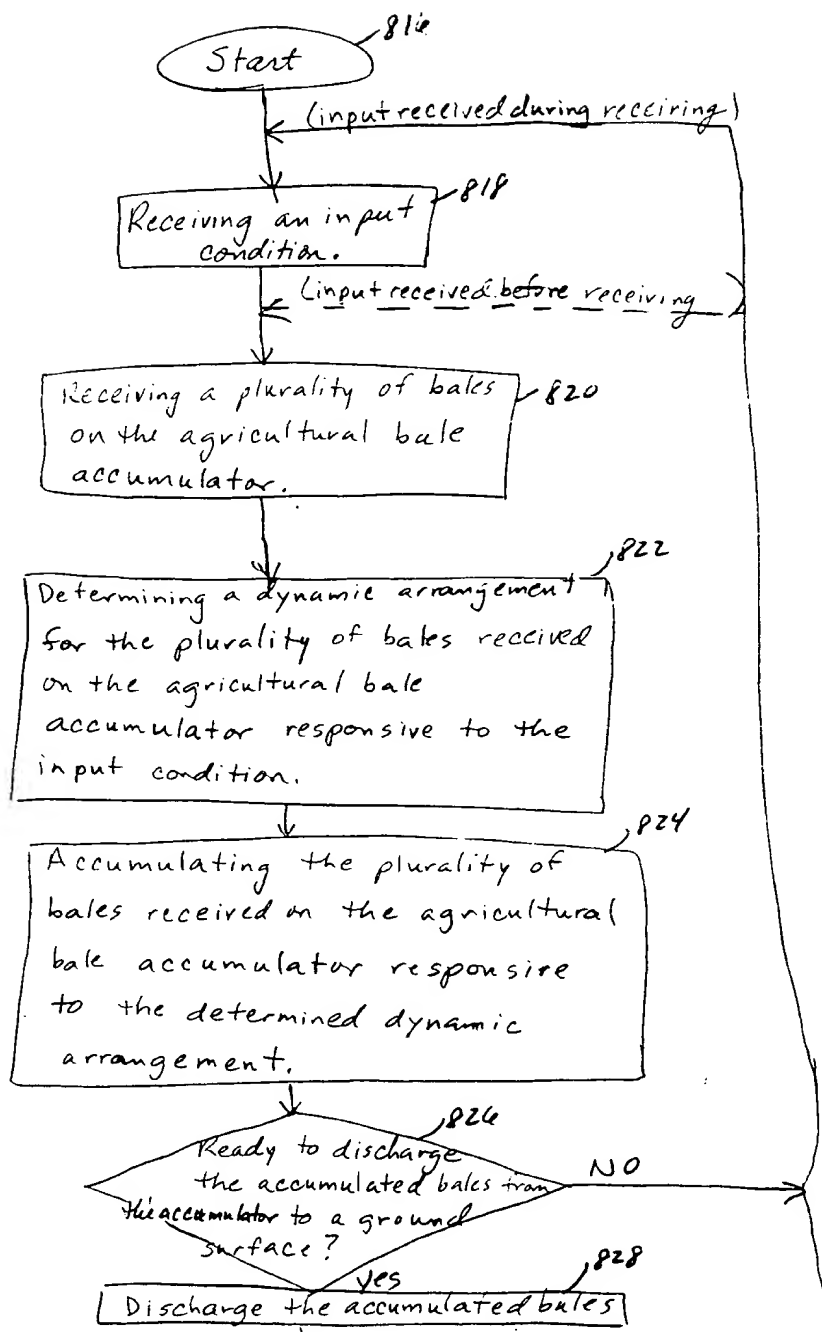 816
Start
(input received during receiving)
818
Receiving an input
condition.
(input received before receiving)
820
Receiving a plurality of bales
on the agricultural bale
accumulator.
822
Determining a dynamic arrangement
for the plurality of bales received
on the agricultural bale
accumulator responsive to the
input condition.
824
Accumulating the plurality of
bales received on the agricultural
bale accumulator responsive
to the determined dynamic
arrangement.
826
Ready to discharge
the accumulated bales from
the accumulator to a ground
surface?
NO
yes
828
Discharge the accumulated bales